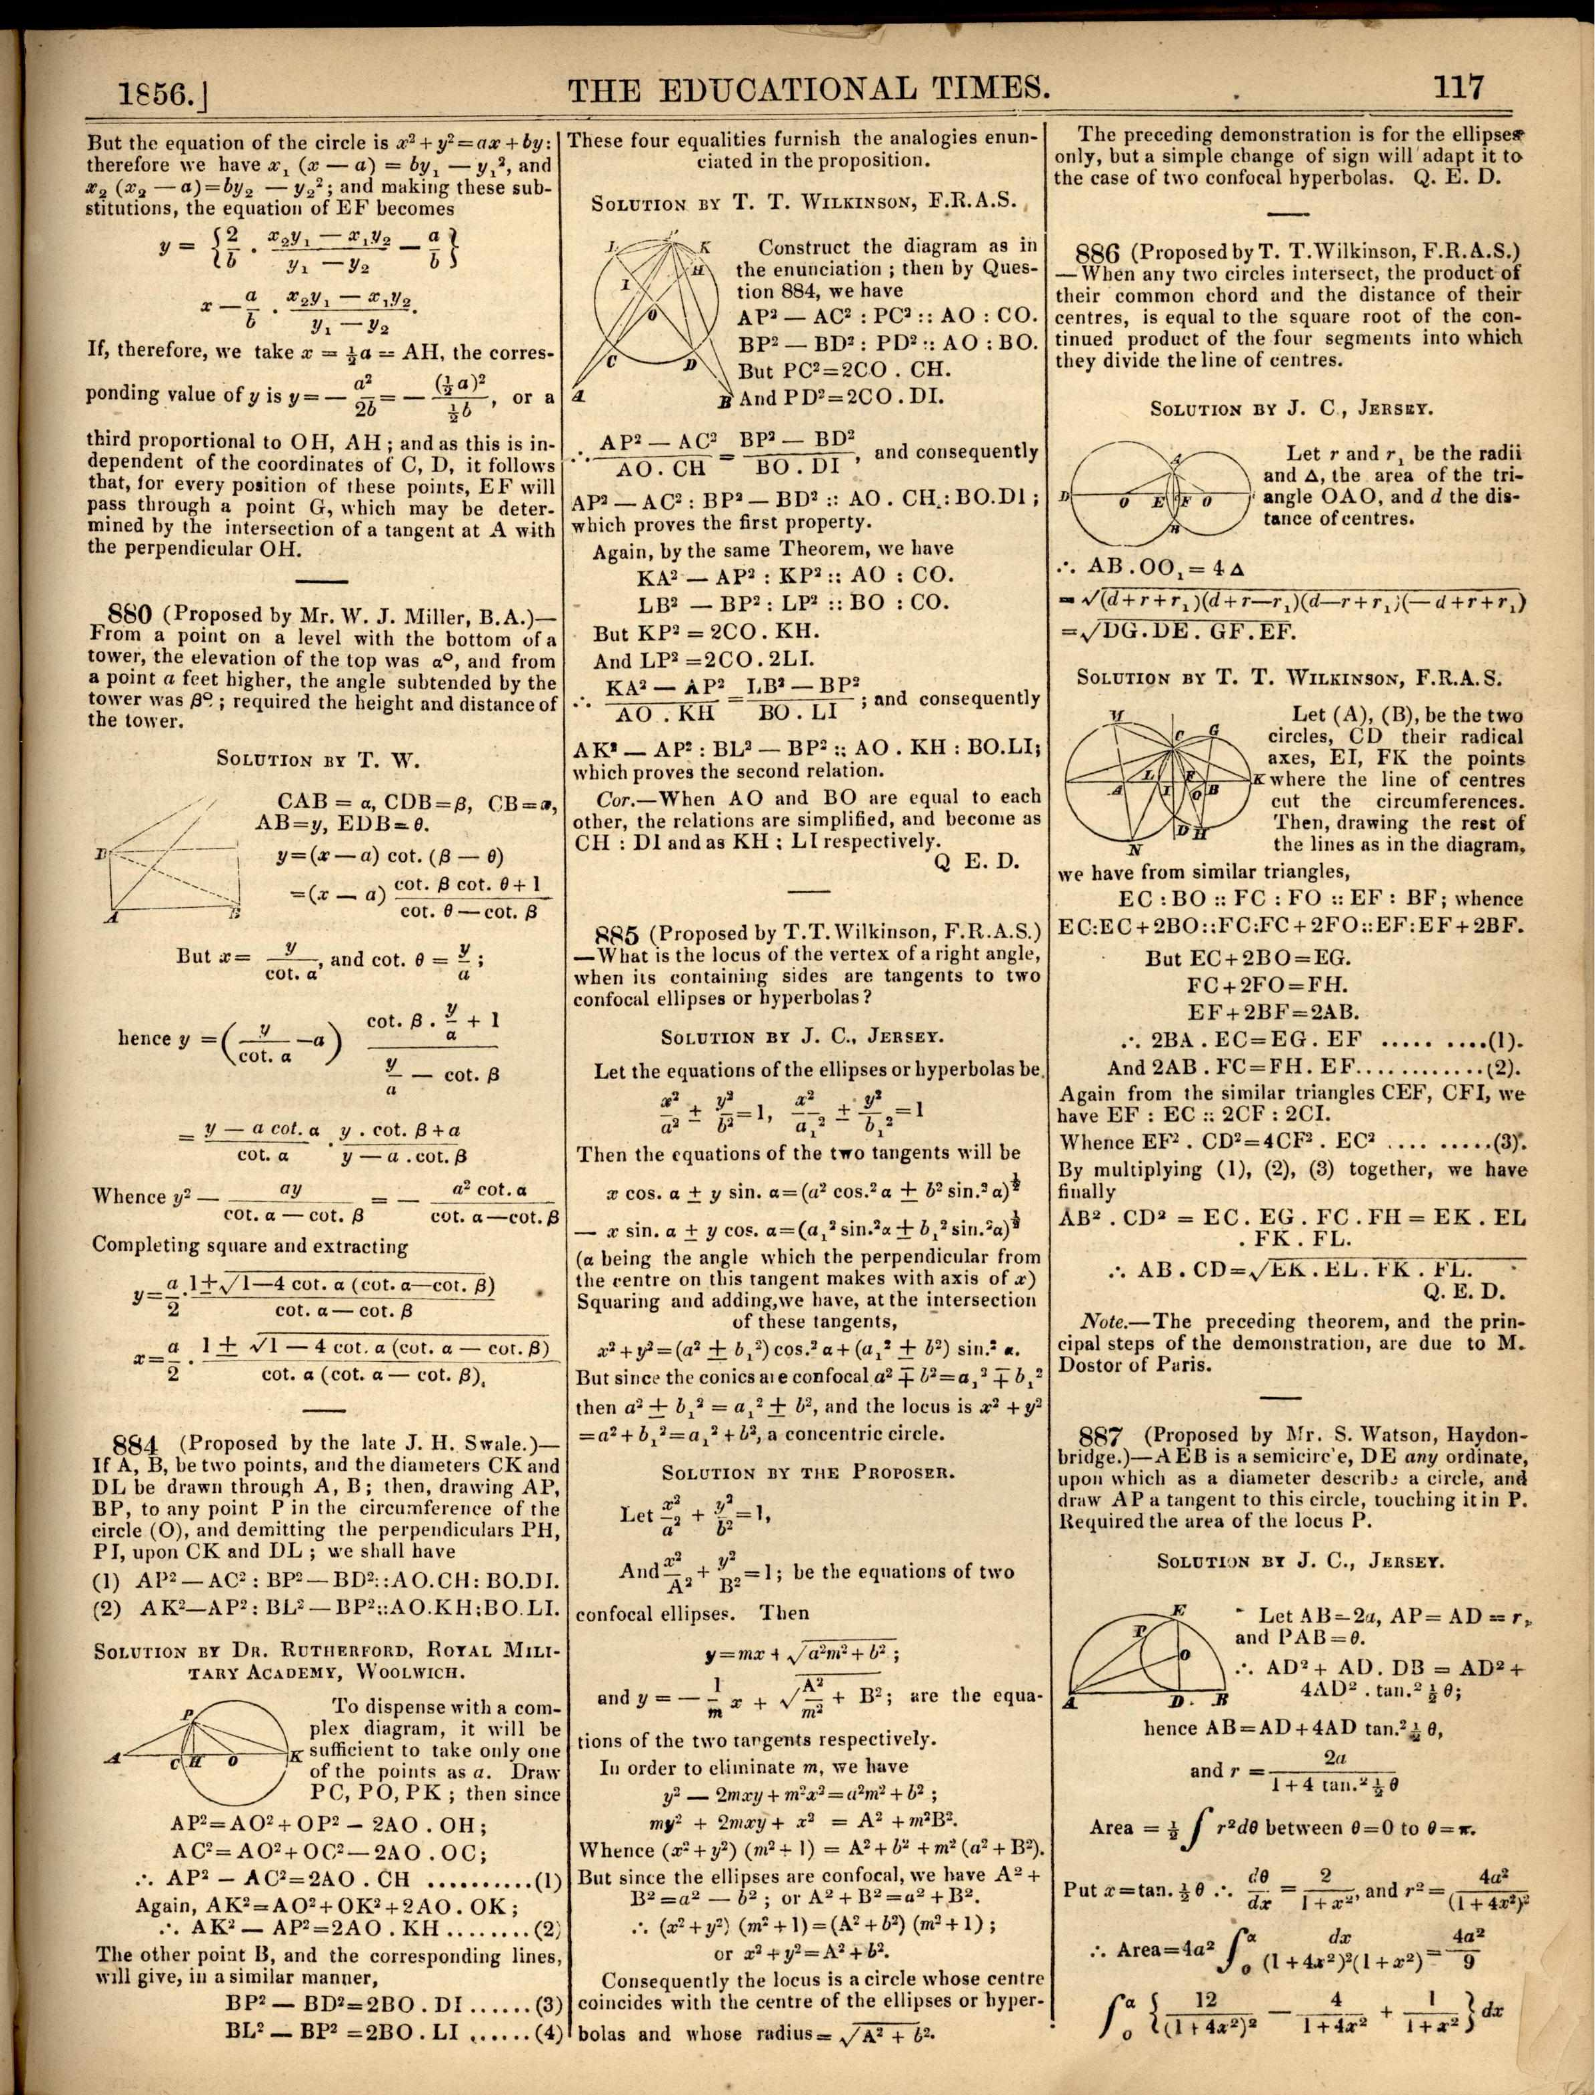 1856.]
THE EDUCATIONAL TIMES.
117
But the equation of the circle is x² + y² = ax + by:
therefore we have x₁ (x — a) = by₁ — y₁², and
x₂ (x₂ — a) = by₂ — y₂²; and making these sub-
stitutions, the equation of EF becomes
y = {2/b · (x₂y₁ — x₁y₂)/(y₁ — y₂) — a/b}
x — a/b · (x₂y₁ — x₁y₂)/(y₁ — y₂).
If, therefore, we take x = ½a = AH, the corres-
ponding value of y is y = — a²/2b = — (½a)²/½b, or a
third proportional to OH, AH; and as this is in-
dependent of the coordinates of C, D, it follows
that, for every position of these points, EF will
pass through a point G, which may be deter-
mined by the intersection of a tangent at A with
the perpendicular OH.
880 (Proposed by Mr. W. J. Miller, B.A.)—
From a point on a level with the bottom of a
tower, the elevation of the top was α°, and from
a point a feet higher, the angle subtended by the
tower was β°; required the height and distance of
the tower.
SOLUTION BY T. W.
CAB = α, CDB = β, CB = x,
AB = y, EDB = θ.
y = (x — a) cot. (β — θ)
= (x — a) (cot. β cot. θ + 1)/(cot. θ — cot. β)
D
A
B
But x = y/cot. α, and cot. θ = y/a;
hence y = (y/cot. α — a) (cot. β . y/a + 1)/(y/a — cot. β)
= (y — a cot. α)/cot. α · (y . cot. β + a)/(y — a . cot. β)
Whence y² — ay/(cot. α — cot. β) = — a² cot. α/(cot. α — cot. β)
Completing square and extracting
y = a/2 . (1 ± √1 — 4 cot. α (cot. α — cot. β))/(cot. α — cot. β)
x = a/2 . (1 ± √1 — 4 cot. α (cot. α — cot. β))/(cot. α (cot. α — cot. β),
884 (Proposed by the late J. H. Swale.)—
If A, B, be two points, and the diameters CK and
DL be drawn through A, B; then, drawing AP,
BP, to any point P in the circumference of the
circle (O), and demitting the perpendiculars PH,
PI, upon CK and DL; we shall have
(1) AP² — AC² : BP² — BD² :: AO.CH : BO.DI.
(2) AK² — AP² : BL² — BP² :: AO.KH : BO.LI.
SOLUTION BY DR. RUTHERFORD, ROYAL MILI-
TARY ACADEMY, WOOLWICH.
P
A
C H O
K
To dispense with a com-
plex diagram, it will be
sufficient to take only one
of the points as a. Draw
PC, PO, PK; then since
AP² = AO² + OP² — 2AO . OH;
AC² = AO² + OC² — 2AO . OC;
∴ AP² — AC² = 2AO . CH ..........(1)
Again, AK² = AO² + OK² + 2AO . OK;
∴ AK² — AP² = 2AO . KH ........(2)
The other point B, and the corresponding lines,
will give, in a similar manner,
BP² — BD² = 2BO . DI ......(3)
BL² — BP² = 2BO . LI ......(4)
These four equalities furnish the analogies enun-
ciated in the proposition.
SOLUTION BY T. T. WILKINSON, F.R.A.S.
L
K
H
I
O
C
D
A
B
Construct the diagram as in
the enunciation; then by Ques-
tion 884, we have
AP² — AC² : PC² :: AO : CO.
BP² — BD² : PD² :: AO : BO.
But PC² = 2CO . CH.
And PD² = 2CO . DI.
∴ (AP² — AC²)/(AO . CH) = (BP² — BD²)/(BO . DI), and consequently
AP² — AC² : BP² — BD² :: AO . CH : BO.DI;
which proves the first property.
Again, by the same Theorem, we have
KA² — AP² : KP² :: AO : CO.
LB² — BP² : LP² :: BO : CO.
But KP² = 2CO . KH.
And LP² = 2CO . 2LI.
∴ (KA² — AP²)/(AO . KH) = (LB² — BP²)/(BO . LI); and consequently
AK² — AP² : BL² — BP² :: AO . KH : BO.LI;
which proves the second relation.
Cor.—When AO and BO are equal to each
other, the relations are simplified, and become as
CH : DI and as KH ; LI respectively.
Q E. D.
885 (Proposed by T.T. Wilkinson, F.R.A.S.)
—What is the locus of the vertex of a right angle,
when its containing sides are tangents to two
confocal ellipses or hyperbolas?
SOLUTION BY J. C., JERSEY.
Let the equations of the ellipses or hyperbolas be
x²/a² ± y²/b² = 1, x²/a₁² ± y²/b₁² = 1
Then the equations of the two tangents will be
x cos. α ± y sin. α = (a² cos.² α ± b² sin.² α)^½
— x sin. α ± y cos. α = (a₁² sin.² α ± b₁² sin.² α)^½
(α being the angle which the perpendicular from
the centre on this tangent makes with axis of x)
Squaring and adding, we have, at the intersection
of these tangents,
x² + y² = (a² ± b₁²) cos.² α + (a₁² ± b²) sin.² α.
But since the conics are confocal a² ∓ b² = a₁² ∓ b₁²
then a² ± b₁² = a₁² ± b², and the locus is x² + y²
= a² + b₁² = a₁² + b², a concentric circle.
SOLUTION BY THE PROPOSER.
Let x²/a² + y²/b² = 1,
And x²/A² + y²/B² = 1; be the equations of two
confocal ellipses. Then
y = mx + √a²m² + b²;
and y = — 1/m x + √A²/m² + B²; are the equa-
tions of the two tangents respectively.
In order to eliminate m, we have
y² — 2mxy + m²x² = a²m² + b²;
my² + 2mxy + x² = A² + m²B².
Whence (x² + y²) (m² + 1) = A² + b² + m² (a² + B²).
But since the ellipses are confocal, we have A² +
B² = a² — b²; or A² + B² = a² + B².
∴ (x² + y²) (m² + 1) = (A² + b²) (m² + 1);
or x² + y² = A² + b².
Consequently the locus is a circle whose centre
coincides with the centre of the ellipses or hyper-
bolas and whose radius = √A² + b².
The preceding demonstration is for the ellipses
only, but a simple change of sign will adapt it to
the case of two confocal hyperbolas. Q. E. D.
886 (Proposed by T. T. Wilkinson, F.R.A.S.)
—When any two circles intersect, the product of
their common chord and the distance of their
centres, is equal to the square root of the con-
tinued product of the four segments into which
they divide the line of centres.
SOLUTION BY J. C., JERSEY.
A
D
O E F O
B
Let r and r₁ be the radii
and Δ, the area of the tri-
angle OAO, and d the dis-
tance of centres.
∴ AB . OO₁ = 4 Δ
= √(d + r + r₁)(d + r — r₁)(d — r + r₁)(— d + r + r₁)
= √DG . DE . GF . EF.
SOLUTION BY T. T. WILKINSON, F.R.A.S.
M
C
G
L
F
K
A
I
O
B
D
H
N
Let (A), (B), be the two
circles, CD their radical
axes, EI, FK the points
where the line of centres
cut the circumferences.
Then, drawing the rest of
the lines as in the diagram,
we have from similar triangles,
EC : BO :: FC : FO :: EF : BF; whence
EC:EC + 2BO::FC:FC + 2FO::EF:EF + 2BF.
But EC + 2BO = EG.
FC + 2FO = FH.
EF + 2BF = 2AB.
∴ 2BA . EC = EG . EF ..... ....(1).
And 2AB . FC = FH . EF............(2).
Again from the similar triangles CEF, CFI, we
have EF : EC :: 2CF : 2CI.
Whence EF² . CD² = 4CF² . EC² .... .....(3).
By multiplying (1), (2), (3) together, we have
finally
AB² . CD² = EC . EG . FC . FH = EK . EL
. FK . FL.
∴ AB . CD = √EK . EL . FK . FL.
Q. E. D.
Note.—The preceding theorem, and the prin-
cipal steps of the demonstration, are due to M.
Dostor of Paris.
887 (Proposed by Mr. S. Watson, Haydon-
bridge.)—AEB is a semicirc'e, DE any ordinate,
upon which as a diameter describe a circle, and
draw AP a tangent to this circle, touching it in P.
Required the area of the locus P.
SOLUTION BY J. C., JERSEY.
E
P
O
A
D. B
Let AB = 2a, AP = AD = r,
and PAB = θ.
∴ AD² + AD . DB = AD² +
4AD² . tan.² ½ θ;
hence AB = AD + 4AD tan.² ½ θ,
and r = 2a/(1 + 4 tan.² ½ θ)
Area = ½ ∫ r²dθ between θ = 0 to θ = π.
Put x = tan. ½ θ ∴ dθ/dx = 2/(1 + x²), and r² = 4a²/(1 + 4x²)²
∴ Area = 4a² ∫₀^α dx/((1 + 4x²)²(1 + x²)) = 4a²/9
∫₀^α {12/(1 + 4x²)² — 4/(1 + 4x²) + 1/(1 + x²)} dx